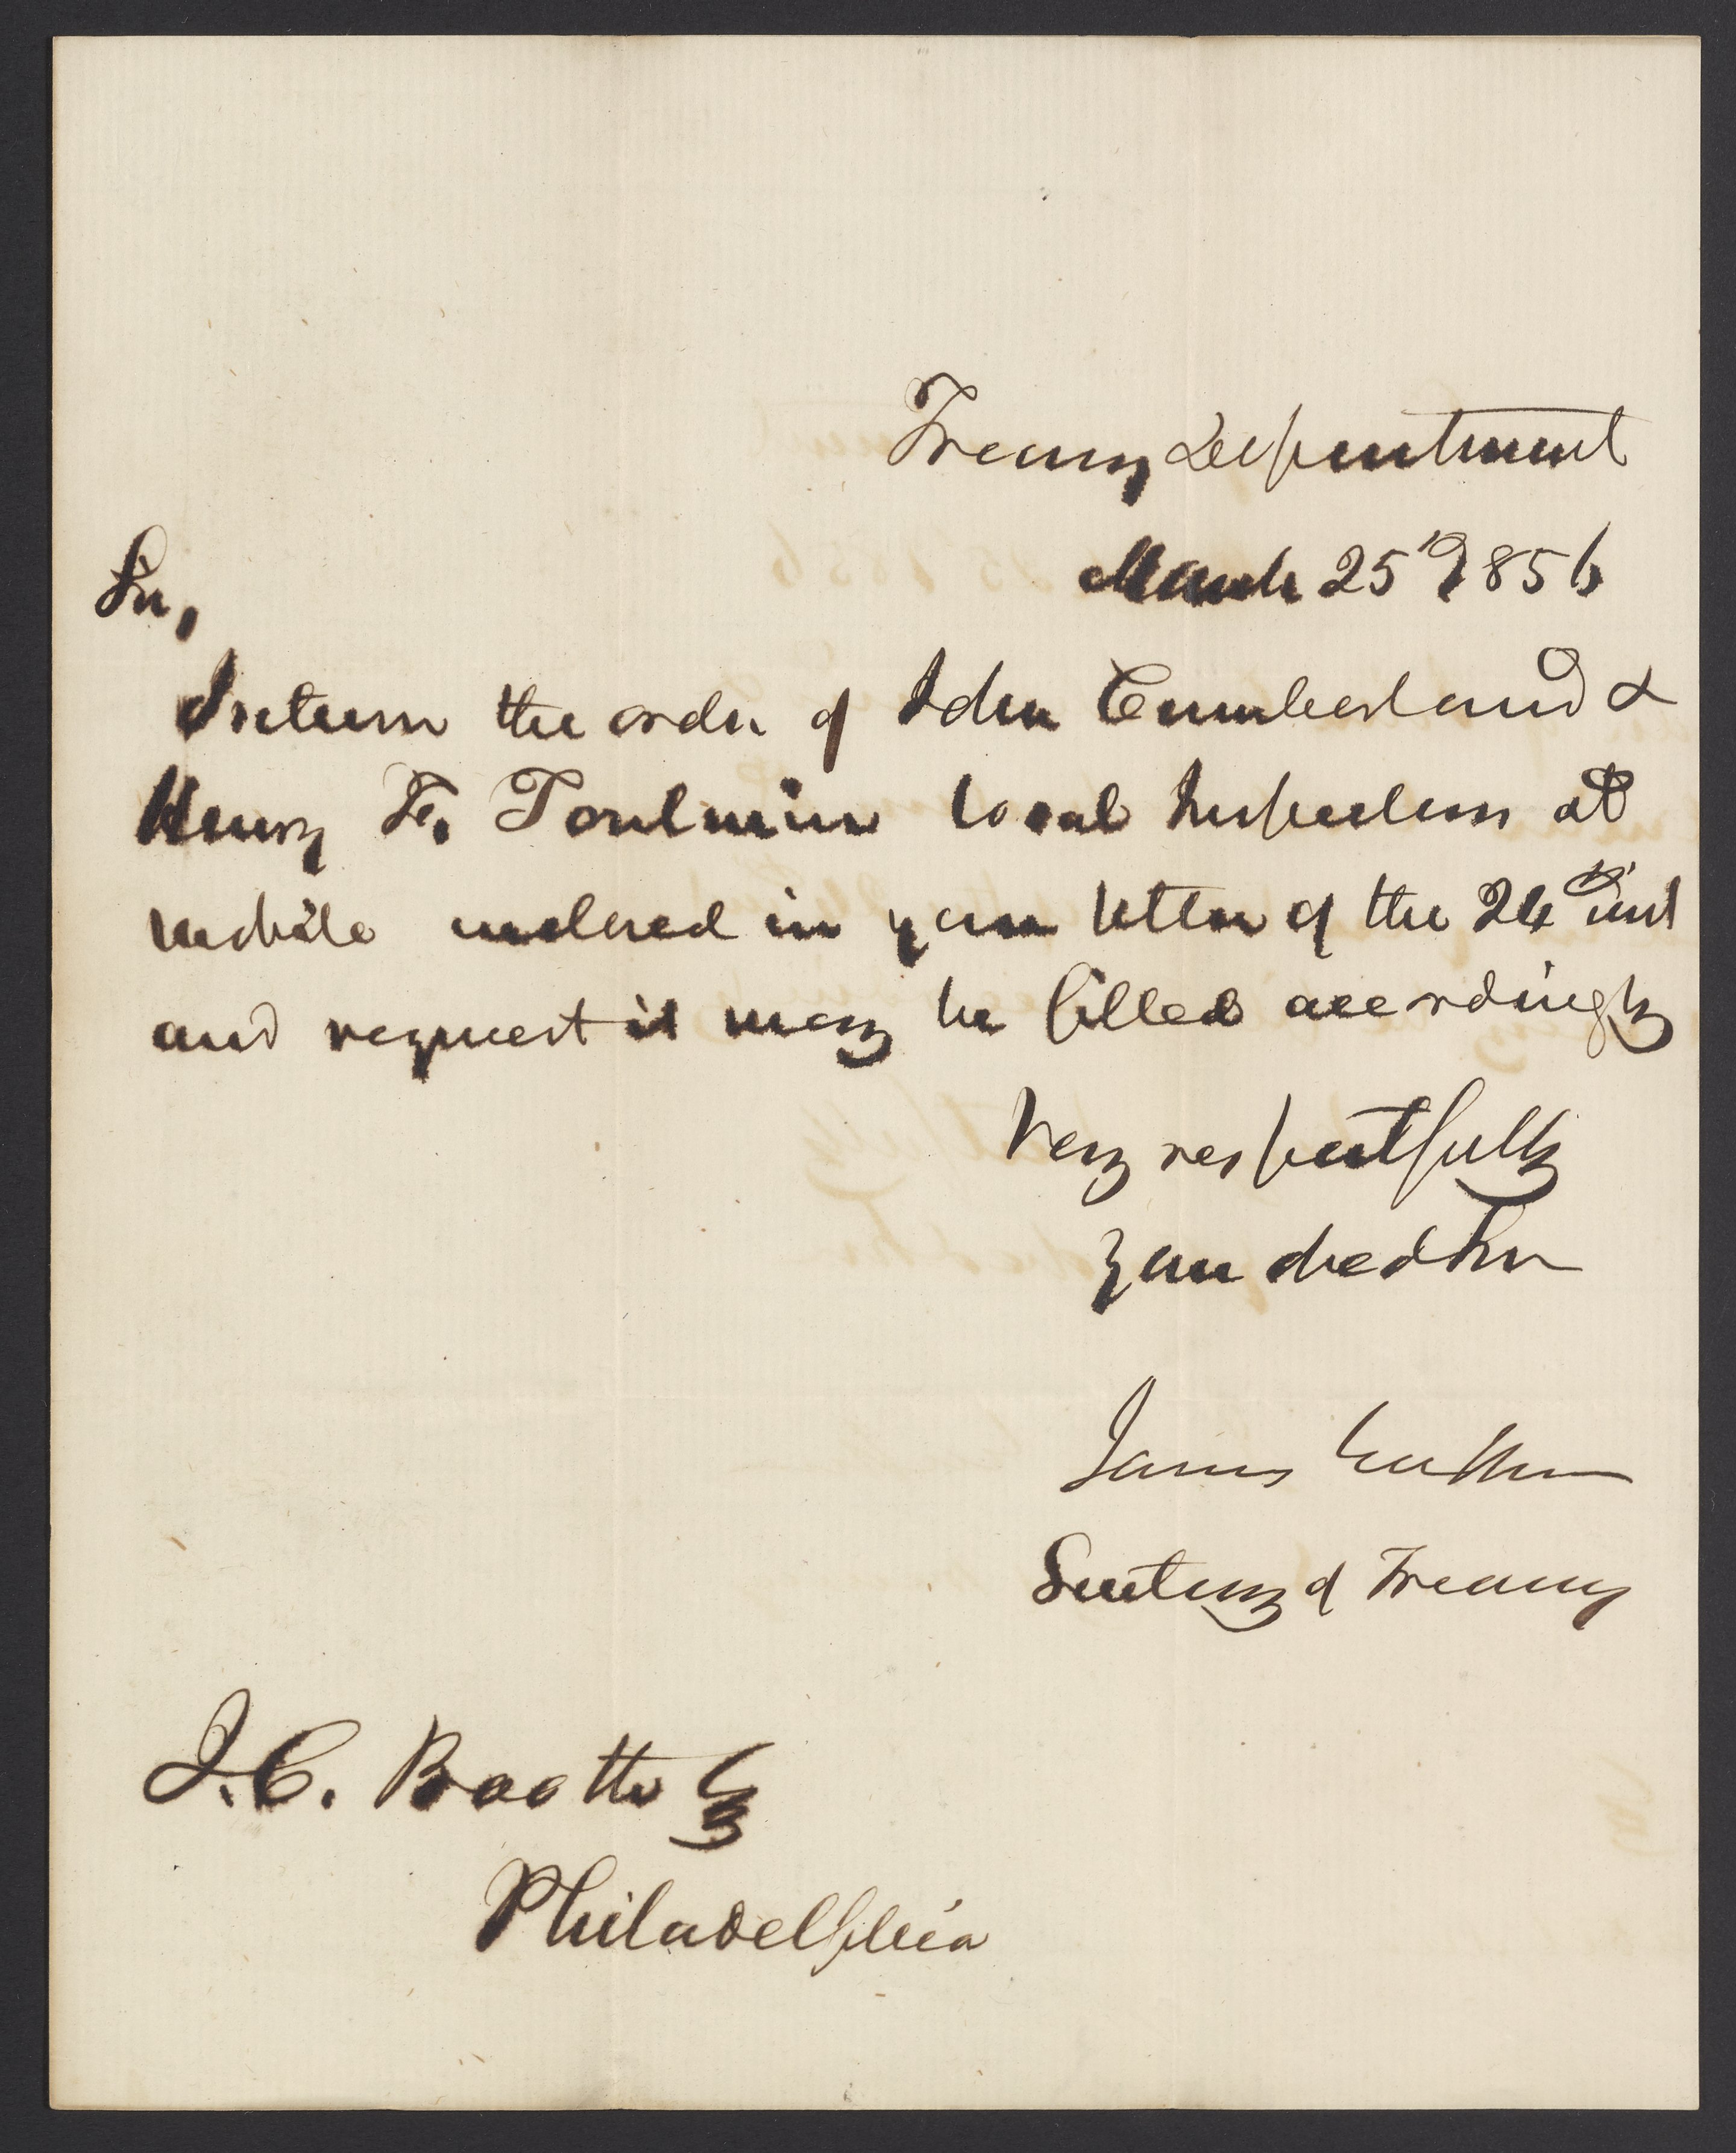 Treasury Department
March 25th 1856
Sir,
I return the order of John Cumberland &
Henry F. Toulmin local Inspectors at
Mobile enclosed in your letter of the 24th inst
and request it may be filled accordingly
Very respectfully
your obed Srv
James Guthrie
Secretary of Treasury
J.C. Booth Esq
Philadelphia